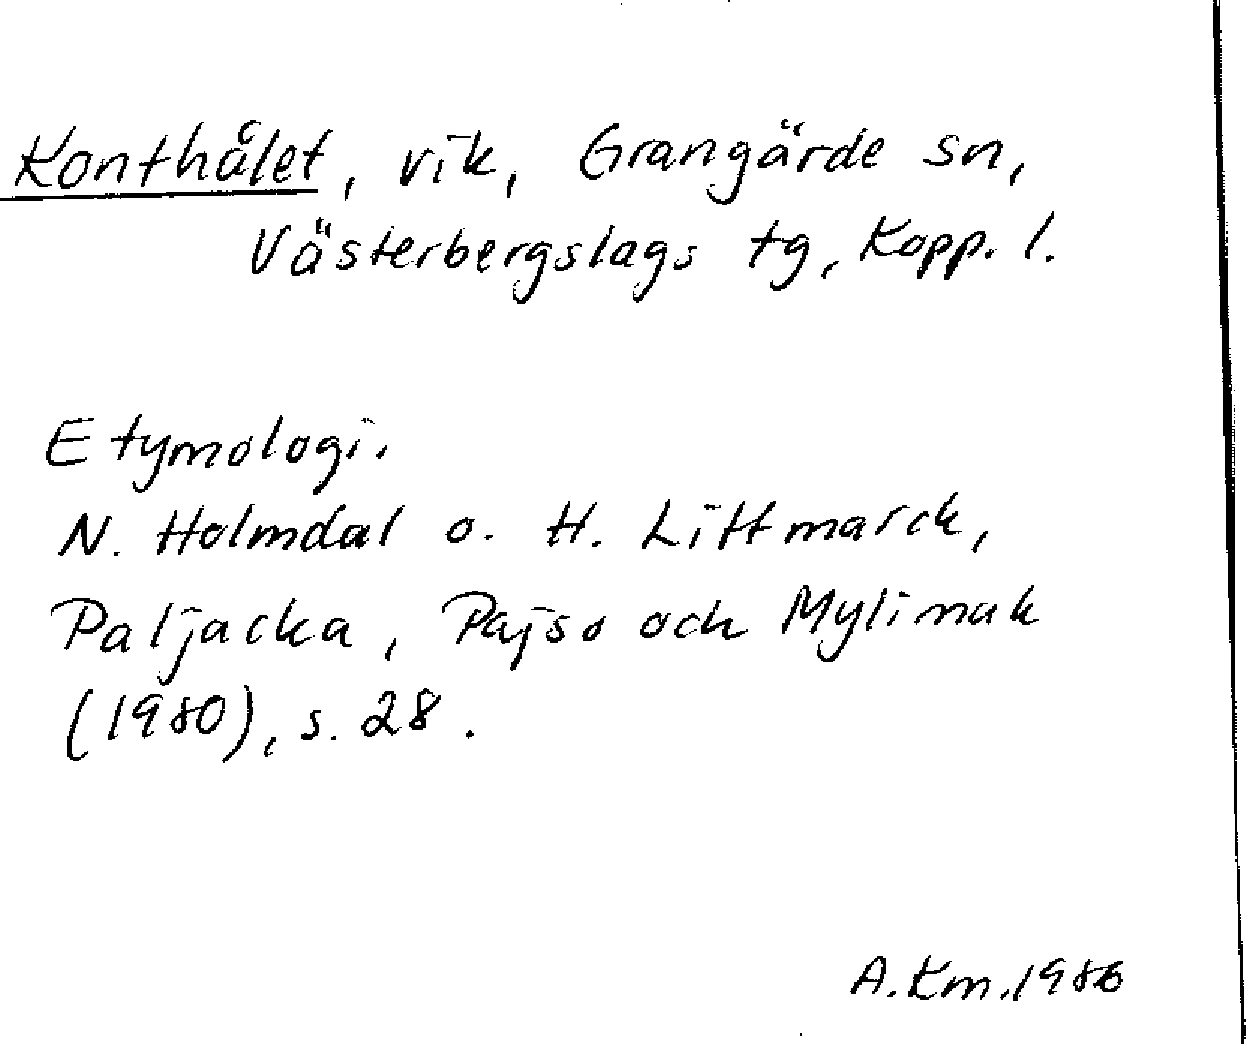 Konthålet, vik, Grangärde sn,
Västerbergslags tg, Kopp. l.
Etymologi.
N. Holmdal o. H. Littmarck,
Paljacka, Pajso och Mylimak
(1980), s. 28.
A.Km.1986